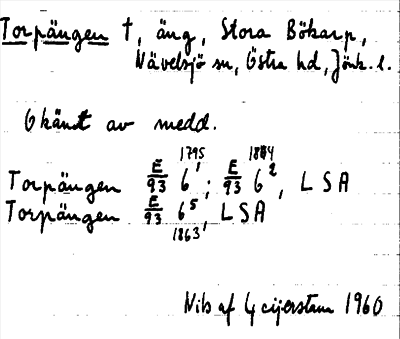 Torpängen †, äng, Stora Bökarp,
Nävelsjö sn, Östra hd, Jönk. l.
Okänt av medd.
1795 1884
Torpängen E/93 6¹; E/93 6², LSA
Torpängen E/93 6⁵, LSA
1863
Nils af Geijerstam 1960